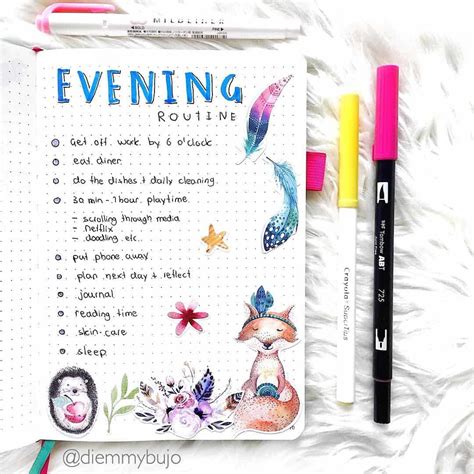 MILDLINER
EVENING
ROUTINE
Get off work by 6 o'clock
eat diner
do the dishes + daily cleaning
30 min - 1 hour playtime
- scrolling through media
- netflix
- doodling etc.
put phone away
plan next day + reflect
journal
reading time
skin-care
sleep
Crayola Super Tips
Tombow
ABT
725
@diemmybujo